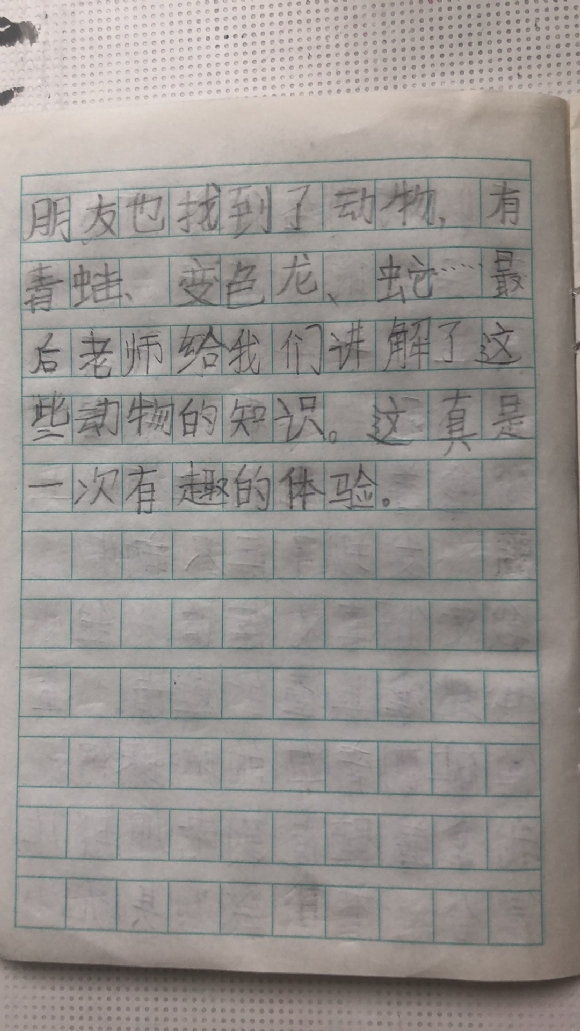 朋友也找到了动物，有
青蛙、变色龙、蛇……最
后老师给我们讲解了这
些动物的知识。这真是
一次有趣的体验。